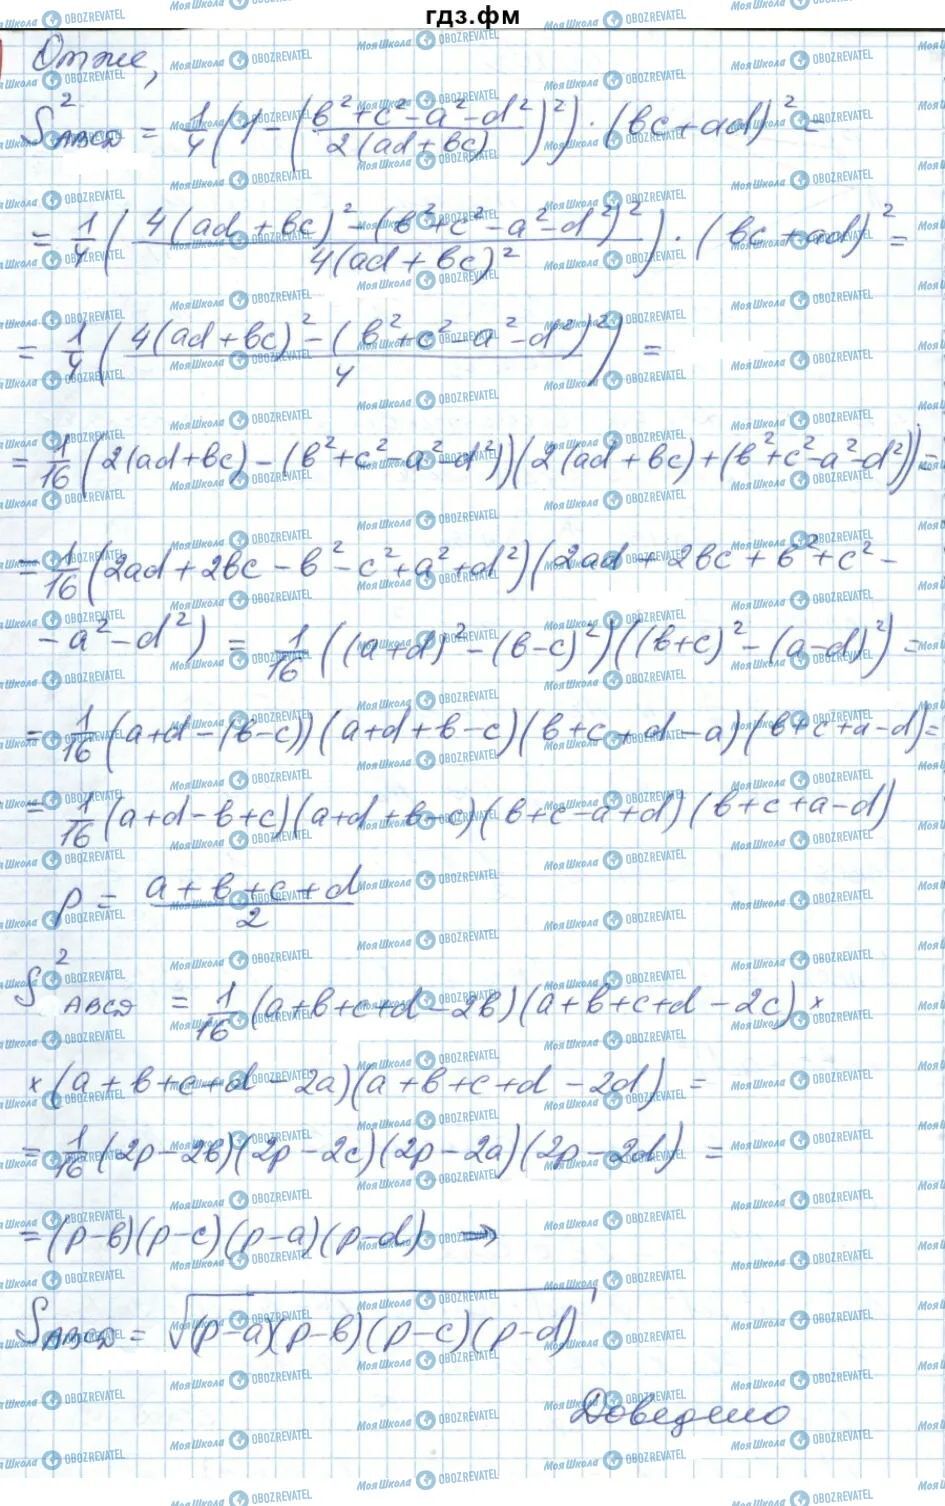 гдз.фм
Отже,
S²ABCD = 1/4 (1 - ((b² + c² - a² - d²)/(2(ad + bc)))²) · (bc + ad)² =
= 1/4 ((4(ad + bc)² - (b² + c² - a² - d²)²)/(4(ad + bc)²)) · (bc + ad)² =
= 1/4 ((4(ad + bc)² - (b² + c² - a² - d²)²)/4) =
= 1/16 (2(ad + bc) - (b² + c² - a² - d²))(2(ad + bc) + (b² + c² - a² - d²)) =
= 1/16 (2ad + 2bc - b² - c² + a² + d²)(2ad + 2bc + b² + c² -
- a² - d²) = 1/16 ((a + d)² - (b - c)²)((b + c)² - (a - d)²) =
= 1/16 (a + d - (b - c))(a + d + b - c)(b + c + d - a)(b + c + a - d) =
= 1/16 (a + d - b + c)(a + d + b - c)(b + c - a + d)(b + c + a - d)
p = (a + b + c + d)/2
S²ABCD = 1/16 (a + b + c + d - 2b)(a + b + c + d - 2c) ×
× (a + b + c + d - 2a)(a + b + c + d - 2d) =
= 1/16 (2p - 2b)(2p - 2c)(2p - 2a)(2p - 2d) =
= (p - b)(p - c)(p - a)(p - d) ⇒
SABCD = √((p - a)(p - b)(p - c)(p - d))
Доведено
МояШкола OBOZREVATEL